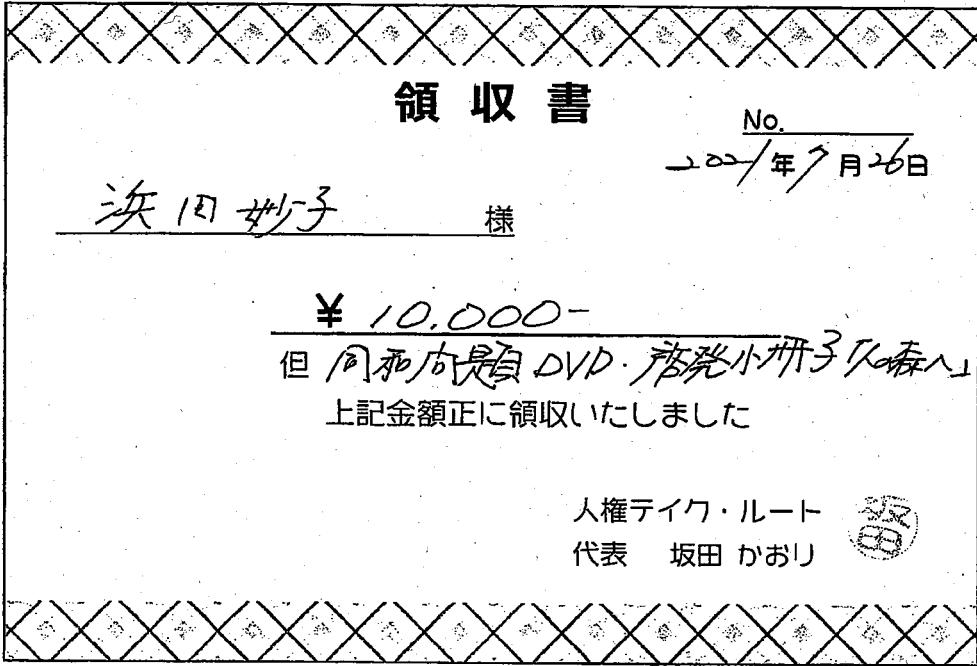 領収書
No.
2021年7月26日
浜田妙子 様
¥ 10,000-
但 同和問題DVD・啓発小冊子「人の森へ」
上記金額正に領収いたしました
人権テイク・ルート
代表 坂田 かおり
坂田